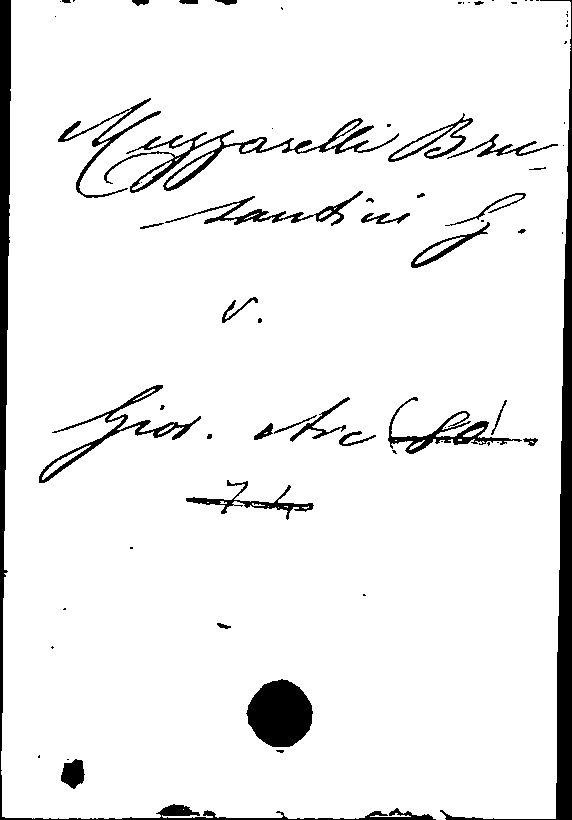 Muzzarelli Bru-
santini G.
v.
Gior. Arc